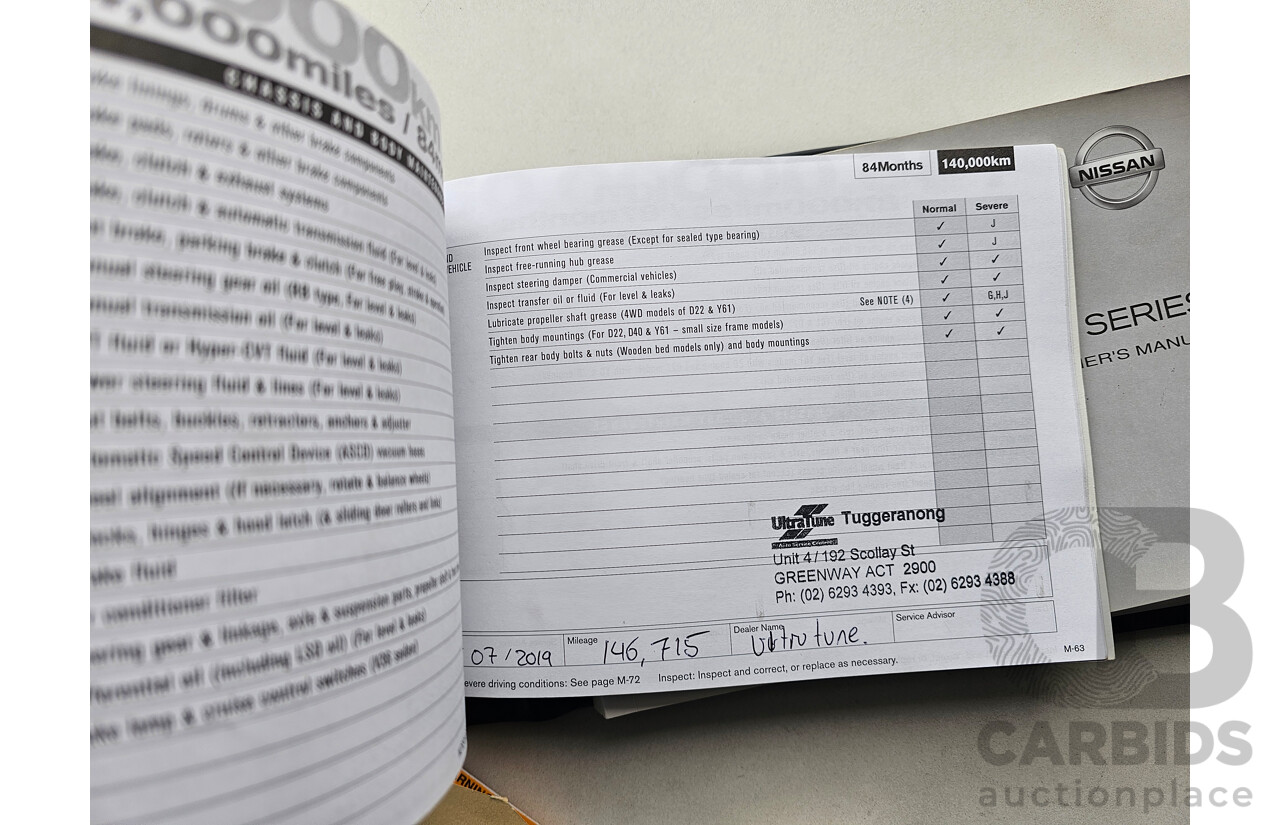 ,000miles / 84
CHASSIS AND BODY MAINTENANCE
linings, drums & other brake components
pads, rotors & other brake components
clutch & exhaust systems
clutch & automatic transmission fluid (For level & leaks)
brake, parking brake & clutch (For free play, stroke &
steering gear oil (RB type, For level & leaks)
transmission oil (For level & leaks)
fluid or Hyper-CVT fluid (For level & leaks)
steering fluid & lines (For level & leaks)
belts, buckles, retractors, anchors & adjuster
Speed Control Device (ASCD) vacuum hoses
alignment (If necessary, rotate & balance wheels)
hinges & hood latch (& sliding door rollers and
fluid
conditioner filter
gear & linkage, axle & suspension parts, propeller
oil (including LSD oil) (For level & leaks)
lamp & cruise control switches
84Months 140,000km
Normal Severe
Inspect front wheel bearing grease (Except for sealed type bearing) ✓ J
Inspect free-running hub grease ✓ J
EHICLE
Inspect steering damper (Commercial vehicles) ✓ ✓
Inspect transfer oil or fluid (For level & leaks) ✓ ✓
Lubricate propeller shaft grease (4WD models of D22 & Y61) See NOTE (4) ✓ G,H,J
Tighten body mountings (For D22, D40 & Y61 – small size frame models) ✓ ✓
Tighten rear body bolts & nuts (Wooden bed models only) and body mountings ✓ ✓
UltraTune Tuggeranong
Auto Service Centres
Unit 4/192 Scollay St
GREENWAY ACT 2900
Ph: (02) 6293 4393, Fx: (02) 6293 4388
07/2019 Mileage 146,715 Dealer Name Ultra tune. Service Advisor
evere driving conditions: See page M-72 Inspect: Inspect and correct, or replace as necessary.
M-63
NISSAN
SERIES
ER'S MANU
CARBIDS
auctionplace